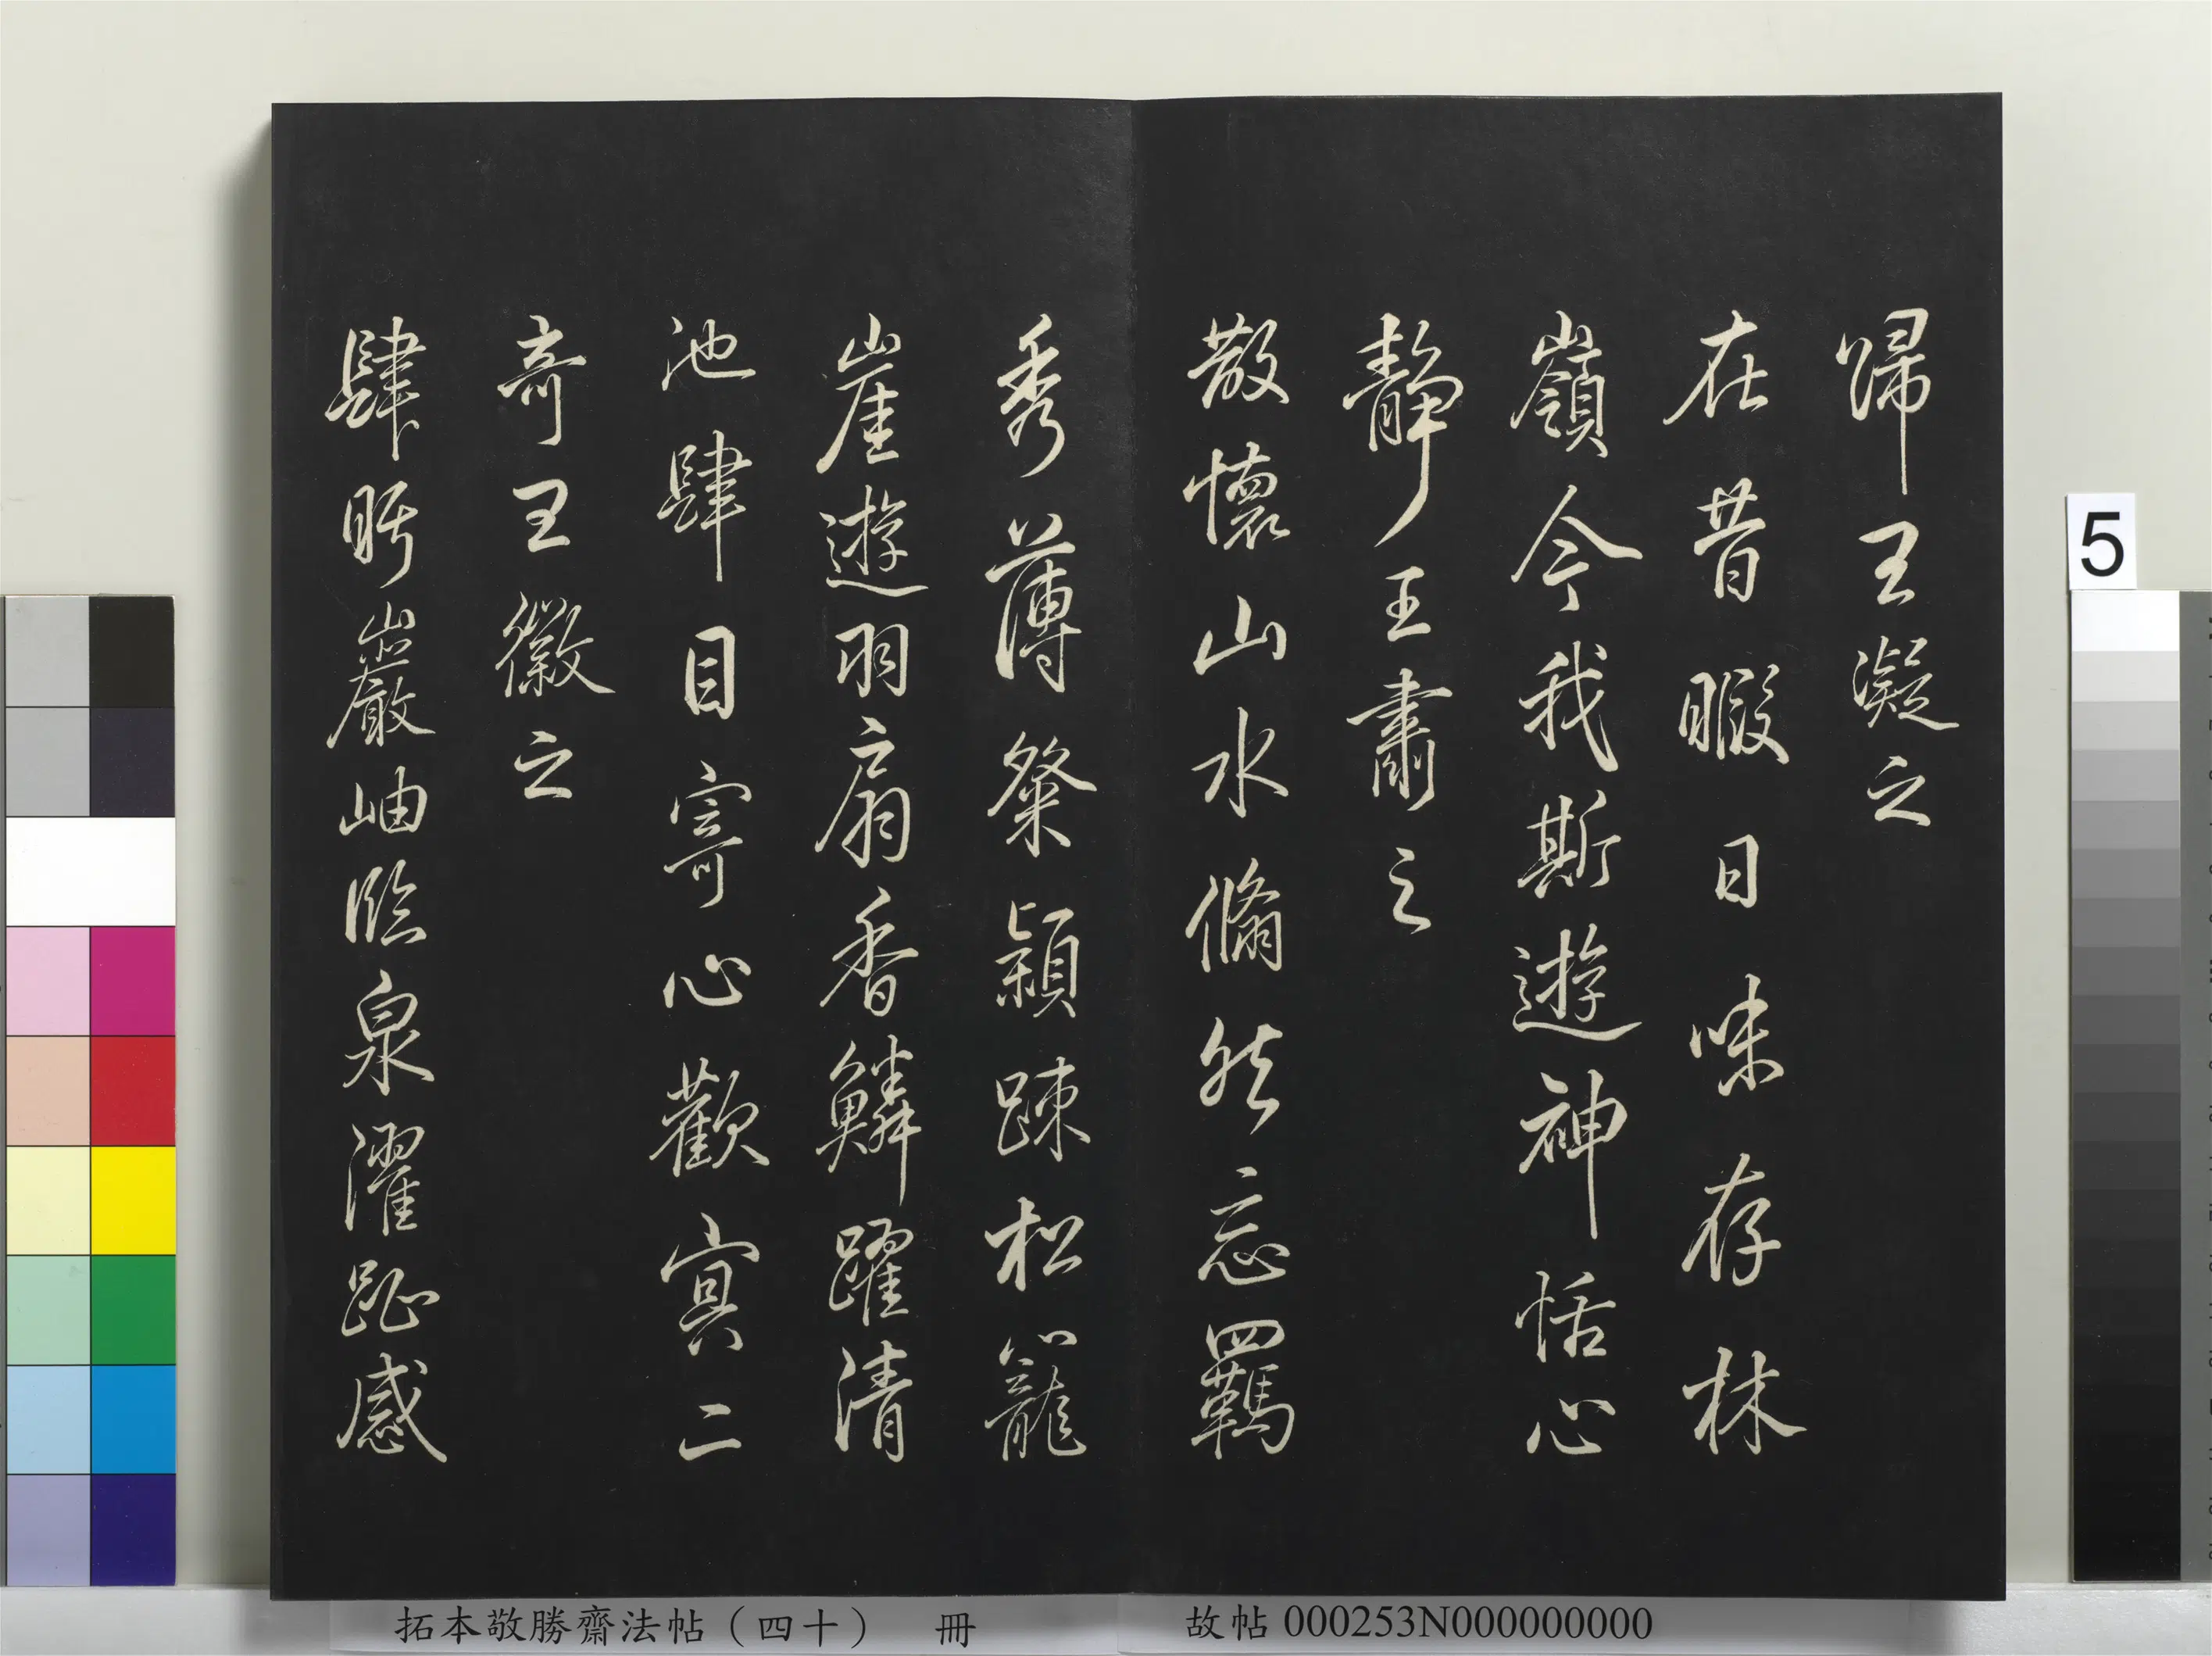 歸王凝之
在昔暇日味存林
嶺今我斯遊神恬心
靜王肅之
散懷山水翛然忘羈
秀薄粲穎踈松籠
崖遊羽扇香鱗躍清
池肆目寄心歡寘二
奇王徽之
肆眄巖岫臨泉濯趾感
5
拓本敬勝齋法帖（四十） 冊
故帖000253N000000000